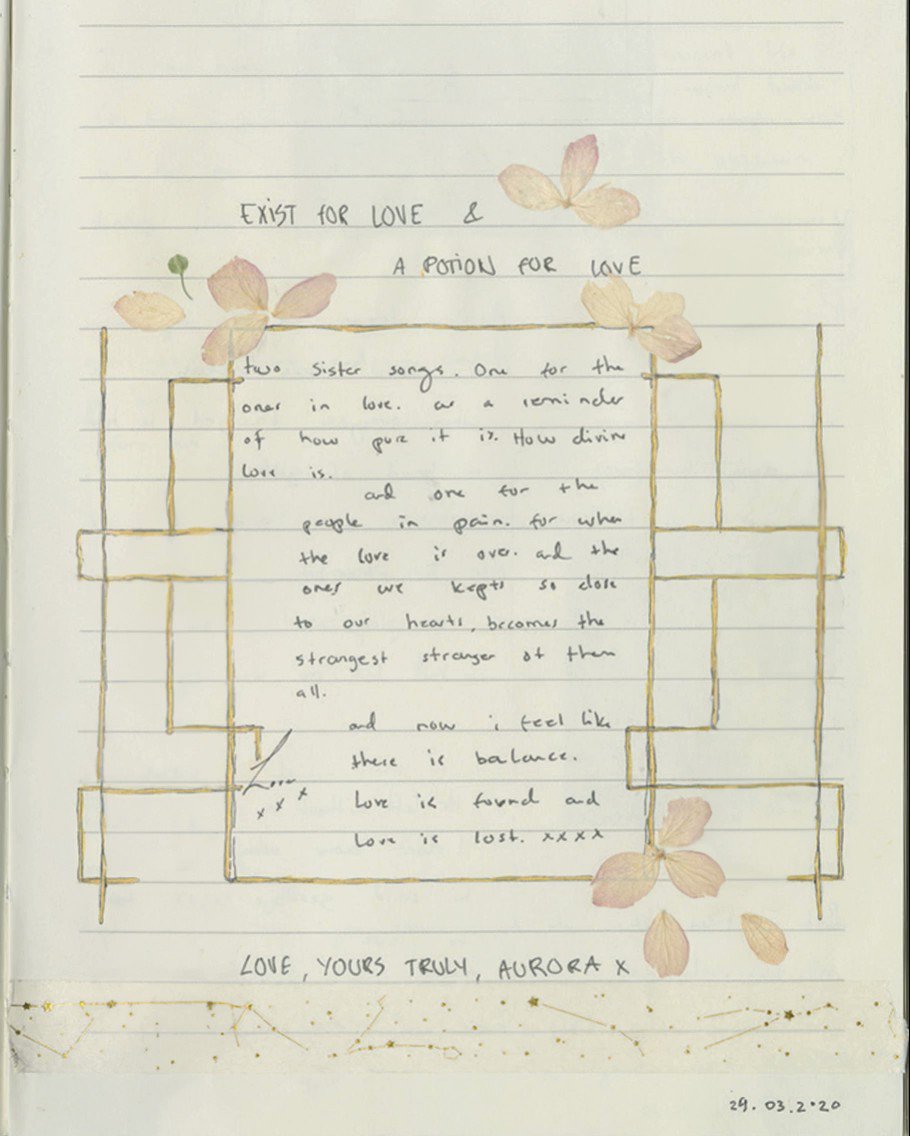 EXIST FOR LOVE &
A POTION FOR LOVE
two sister songs. One for the
ones in love. as a reminder
of how pure it is. How divine
love is.
and one for the
people in pain. for when
the love is over. and the
ones we kepts so close
to our hearts, becomes the
strangest stranger of them
all.
and now i feel like
there is balance.
Love is found and
Love is lost. xxxx
Love
x x x
LOVE, YOURS TRULY, AURORA x
29.03.2020